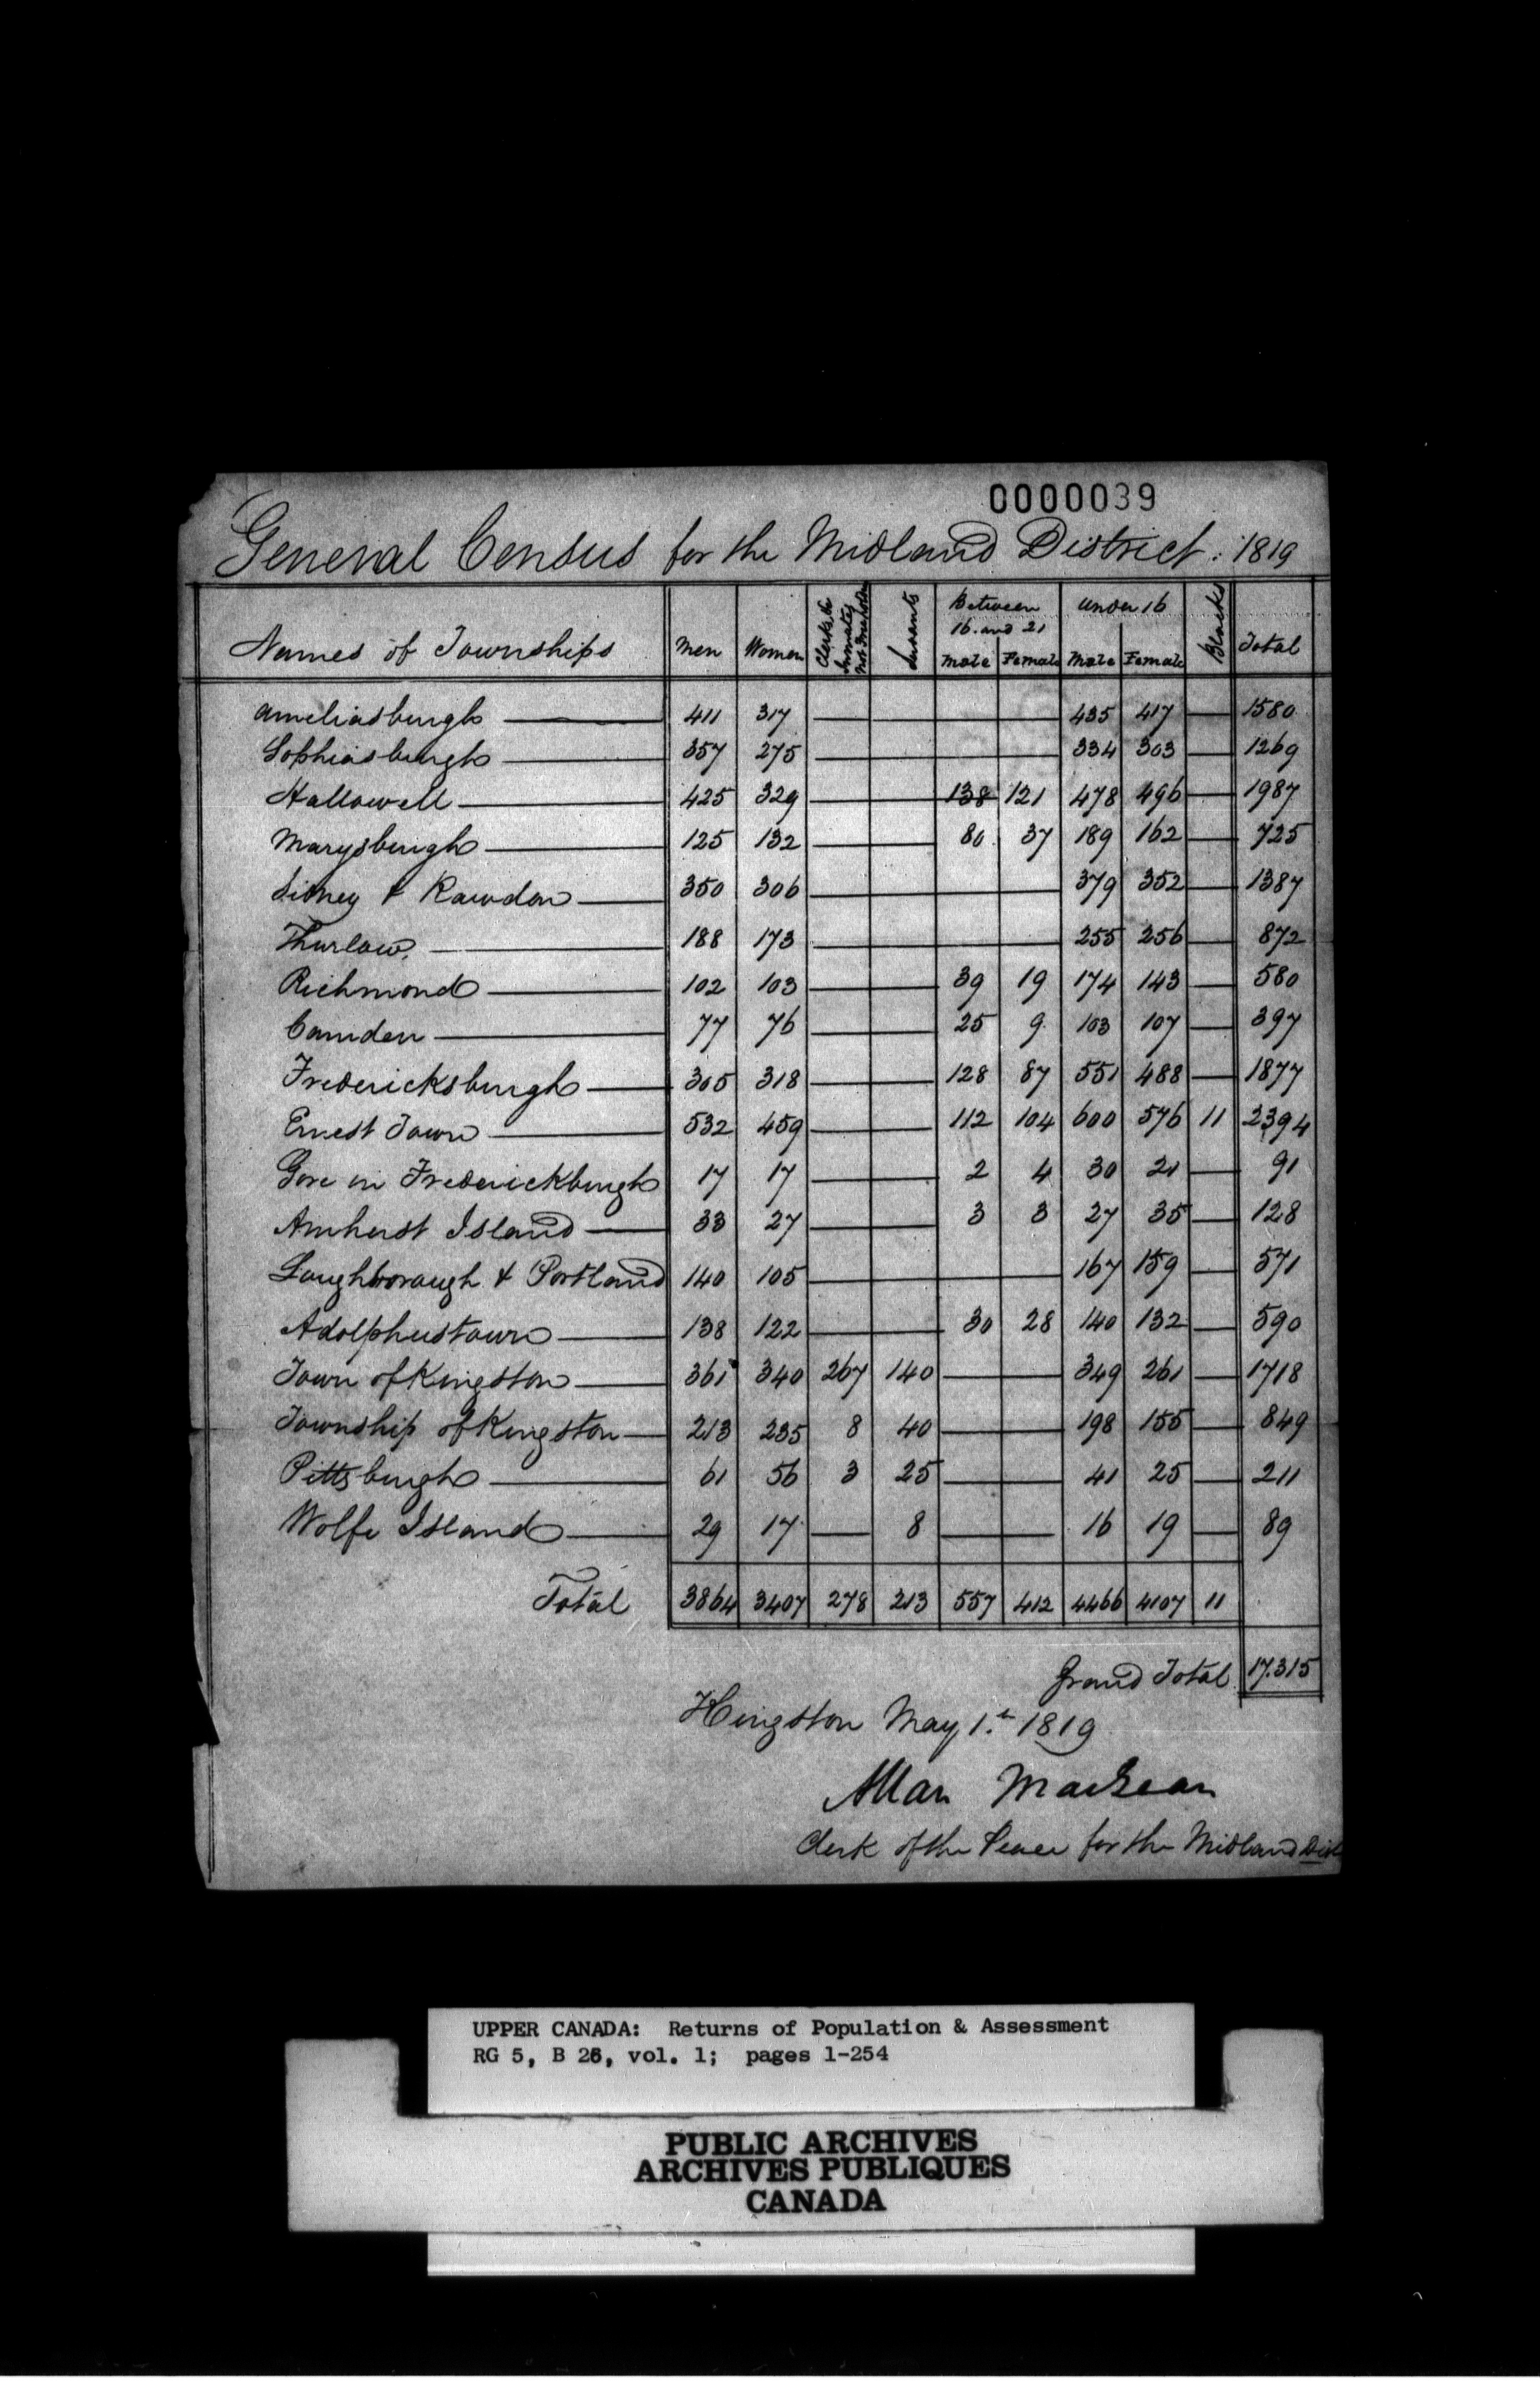 0000039
General Census for the Midland District: 1819
Names of Townships | Men | Women | Clerks & Inmates not | Servants | Between 16. and 21 Male | Female | under 16 Male | Female | Blacks | Total
Ameliasburgh 411 317 435 417 1580
Sophiasburgh 357 275 334 303 1269
Hallowell 425 329 138 121 478 496 1987
Marysburgh 125 132 80 37 189 162 725
Sidney & Rawdon 350 306 379 352 1387
Thurlow. 188 173 255 256 872
Richmond 102 103 39 19 174 143 580
Camden 77 76 25 9 103 107 397
Fredericksburgh 305 318 128 87 551 488 1877
Ernest Town 532 459 112 104 600 576 11 2394
Gore in Frederickburgh 17 17 2 4 30 21 91
Amherst Island 33 27 3 3 27 35 128
Loughborough & Portland 140 105 167 159 571
Adolphustown 138 122 30 28 140 132 590
Town of Kingston 361 340 267 140 349 261 1718
Township of Kingston 213 235 8 40 198 155 849
Pittsburgh 61 56 3 25 41 25 211
Wolfe Island 29 17 8 16 19 89
Total 3864 3407 278 213 557 412 4466 4107 11
Grand Total 17.315
Kingston May 1.st 1819
Allan MacLean
Clerk of the Peace for the Midland Dist
UPPER CANADA: Returns of Population & Assessment
RG 5, B 26, vol. 1; pages 1-254
PUBLIC ARCHIVES
ARCHIVES PUBLIQUES
CANADA